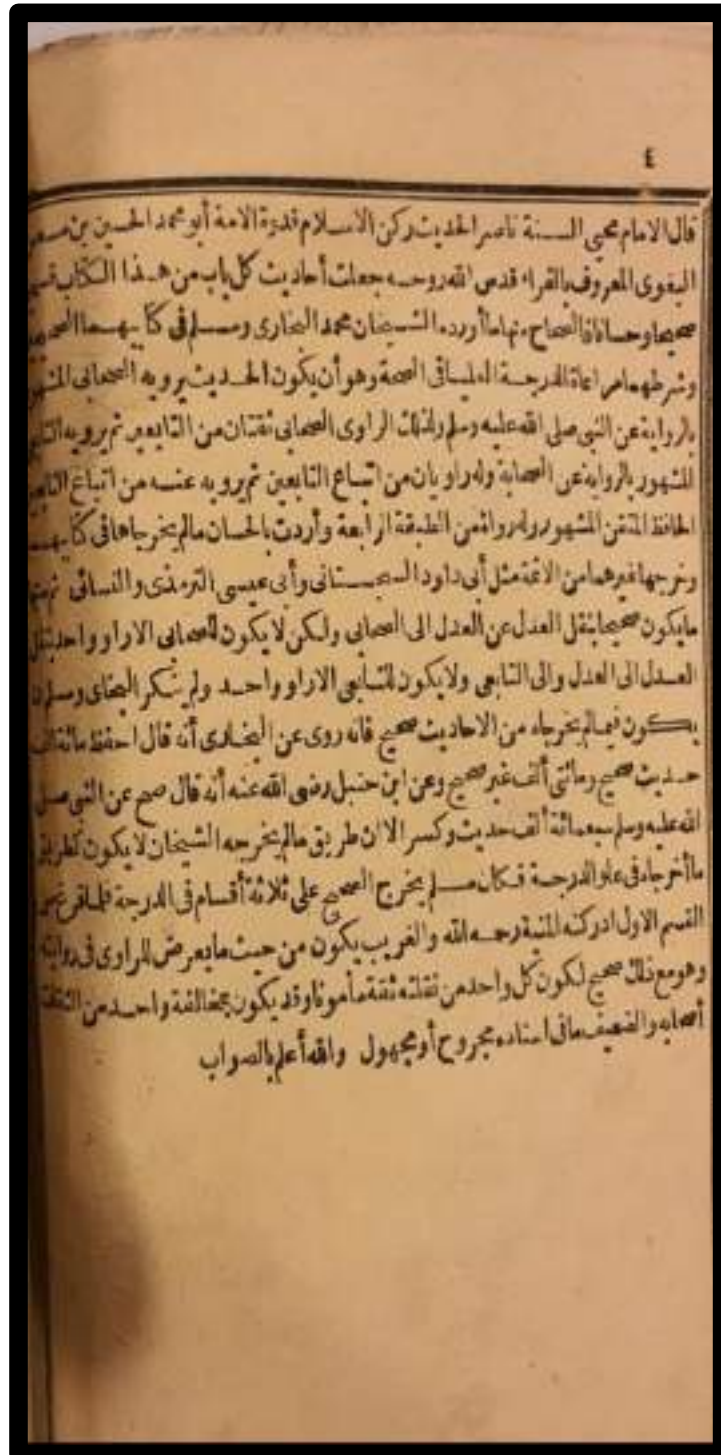 ٤
قال الامام محيي السنة ناصر الحديث ركن الاسلام قدوة الامة أبو محمد الحسين بن
البغوى المعروف بالفراء قدس الله روحه جعلت أحاديث كل باب من هذا الكتاب
صحيحا وحسانا فالصحاح منها ما أورده الشيخان محمد البخارى ومسلم فى كتابيهما
وشرطهما مراعاة الدرجة العليا فى الصحة وهو أن يكون الحديث يرويه الصحابى المشهور
بالرواية عن النبى صلى الله عليه وسلم ولذلك الراوى الصحابى ثقتان من التابعين ثم يرويه
المشهور بالرواية عن الصحابة وله راويان من اتباع التابعين ثم يرويه عنه من اتباع التابعين
الحافظ المتقن المشهور وله رواة من الطبقة الرابعة وأردت بالحسان مالم يخرجاها فى كتابيهما
وخرجها غيرهما من الائمة مثل أبى داود السجستانى وأبى عيسى الترمذى والنسائى ثم منها
ما يكون صحيحا بنقل العدل عن العدل الى الصحابى ولكن لا يكون للصحابى الا راو واحد
العدل الى العدل والى التابعى ولا يكون للتابعى الا راو واحد ولم ينكر
يكون فيما لم يخرجاه من الاحاديث صحيح فانه روى عن البخارى أنه قال احفظ مائة ألف
حديث صحيح ومائتى ألف غير صحيح وعن ابن حنبل رضى الله عنه أنه قال صح عن النبى صلى
الله عليه وسلم سبعمائة ألف حديث وكسر الا ان طريق مالم يخرجه الشيخان لا يكون كطريق
ما أخرجاه فى علو الدرجة فكان مسلم يخرج الصحيح على ثلاثة أقسام فى الدرجة فلما فرغ
القسم الاول ادركته المنية رحمه الله والغريب يكون من حيث ما يعرض للراوى فى روايته
وهو مع ذلك صحيح لكون كل واحد من نقلته ثقة مأمونا وقد يكون بمخالفة واحد من الثقات
أصحابه والضعيف ما فى اسناده مجروح أو مجهول والله أعلم بالصواب